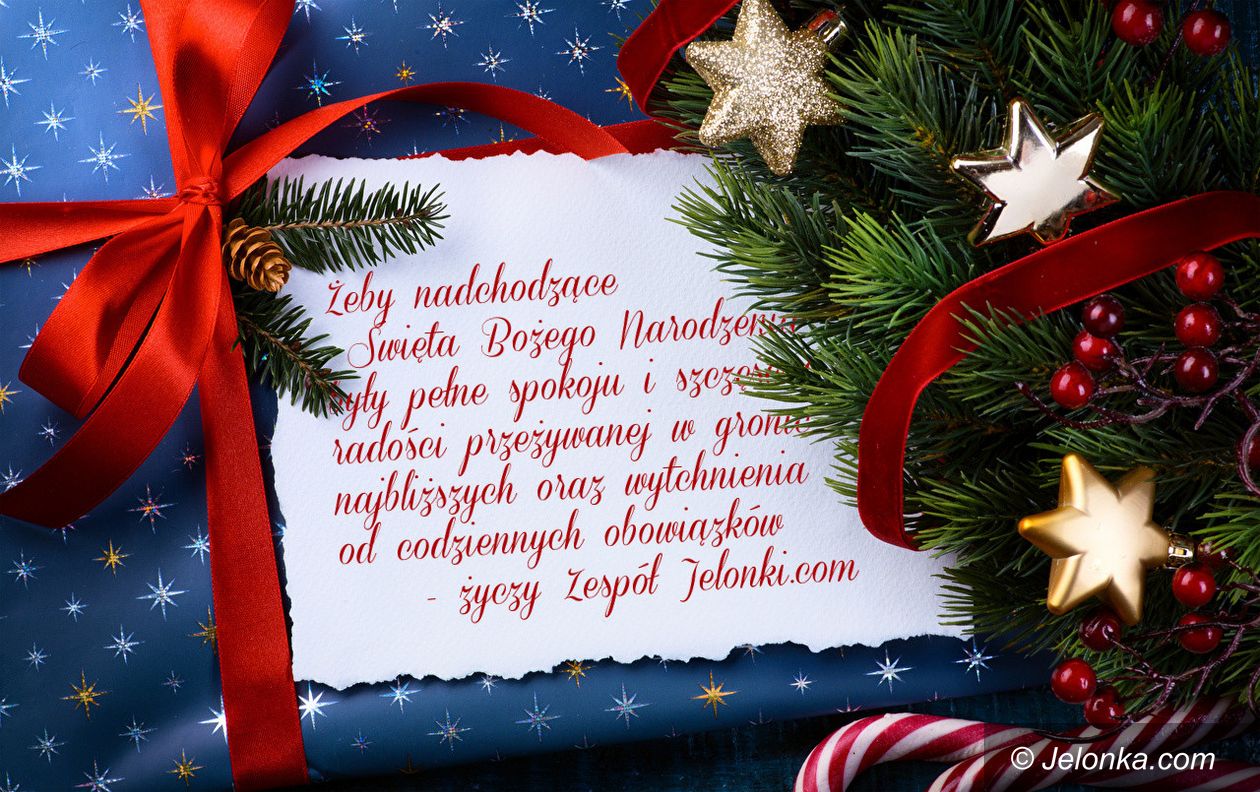 Żeby nadchodzące
Święta Bożego Narodzenia
były pełne spokoju i
radości przeżywanej w gronie
najbliższych oraz wytchnienia
od codziennych obowiązków
- życzy Zespół Jelonki.com
© Jelonka.com